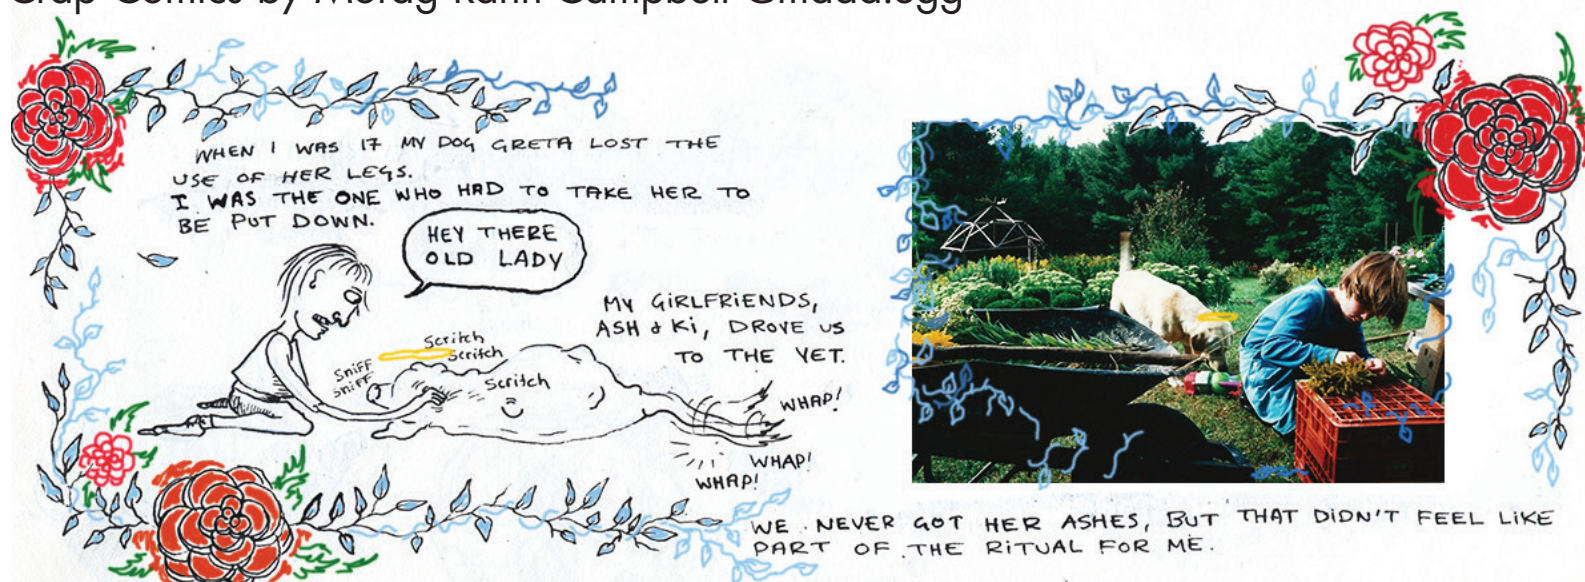 Comics by Morag Campbell
WHEN I WAS 17 MY DOG GRETA LOST THE
USE OF HER LEGS.
I WAS THE ONE WHO HAD TO TAKE HER TO
BE PUT DOWN.
HEY THERE
OLD LADY
MY GIRLFRIENDS,
ASH & KI, DROVE US
TO THE VET.
Scritch
Scritch
Sniff
Sniff
Scritch
WHAP!
WHAP!
WHAP!
WE NEVER GOT HER ASHES, BUT THAT DIDN'T FEEL LIKE
PART OF THE RITUAL FOR ME.